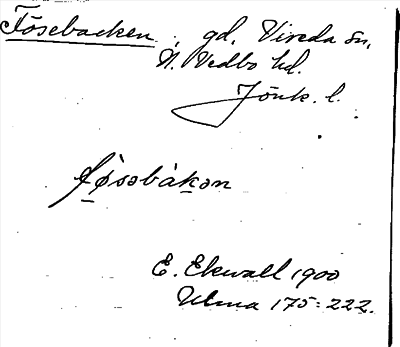 Fösebacken, gd, Vireda sn,
N. Vedbo hd.
Jönk. l.
fø̀səbàkən
E. Ekwall 1900
Ulma 175:222.